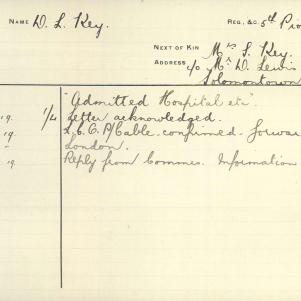 NAME D. L. Key. REG., &C. 5th Pio
NEXT OF KIN Mrs S. Key.
ADDRESS c/o Mr D. Lewis
Solomontown
"Admitted Hospital etc"
19. 1/4 Letter acknowledged.
19. Cable confirmed. Forwar
" London.
19. Reply from Commes. Information